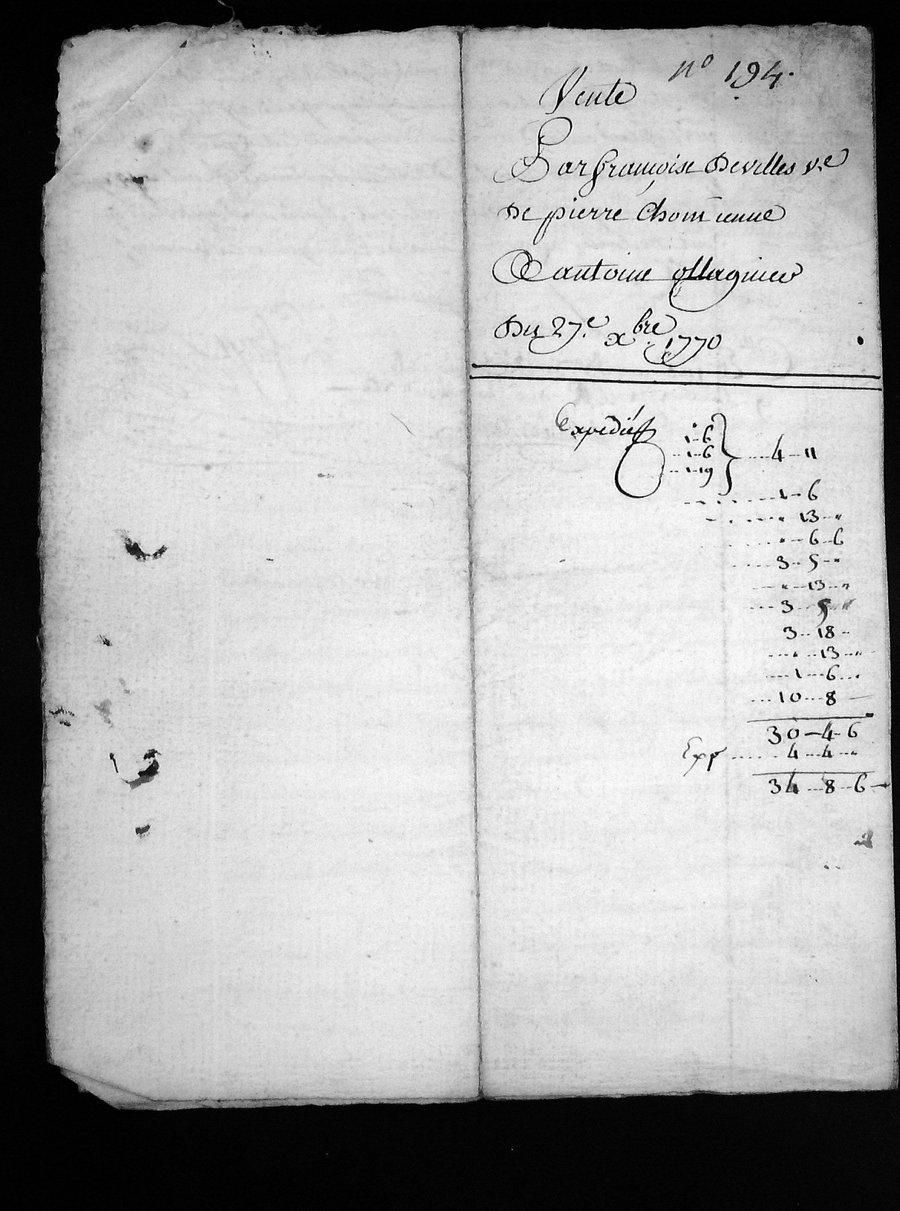 n° 194.
Vente
Par françoise Devilles v.e
De pierre Chomienne
A antoine ollagnier
Du 27.e xbre 1770
Expédiéff
1-6
1-6
1-19
4-11
1-6
"-13-"
"-6-6
3-5-"
"-13-"
3-5-"
3-18-
"-13-"
1-6-
10-8-
30-4-6
Exp 4-4-"
34-8-6